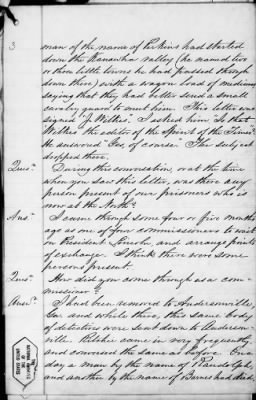 3
man of the name of Perkins had started
down the Kanawha valley (he named two
or three little towns he had passed through
down there) with a wagon load of medicine
saying that they had better send a small
cavalry guard to meet him. This letter was
signed "J. Wilkes". I asked him "Is that
Wilkes the editor of the Spirit of the Times?"
He answered "Yes, of course." The subject
dropped there.
Ques. During this conversation, or at the time
when you saw this letter, was there any
person present of our prisoners who is
now at the North?
Ans. I came through some four or five months
ago as one of four commissioners to wait
on President Lincoln, and arrange points
of exchange. I think there were some
persons present.
Ques. How did you come through as a com-
missioner?
Answ. I had been removed to Andersonville
Ga. and while there, this same body
of detectives were sent down to Anderson-
ville. Ritchie came in very frequently
and conversed the same as before. One
day a man by the name of Randolph,
and another by the name of Barnes had died,